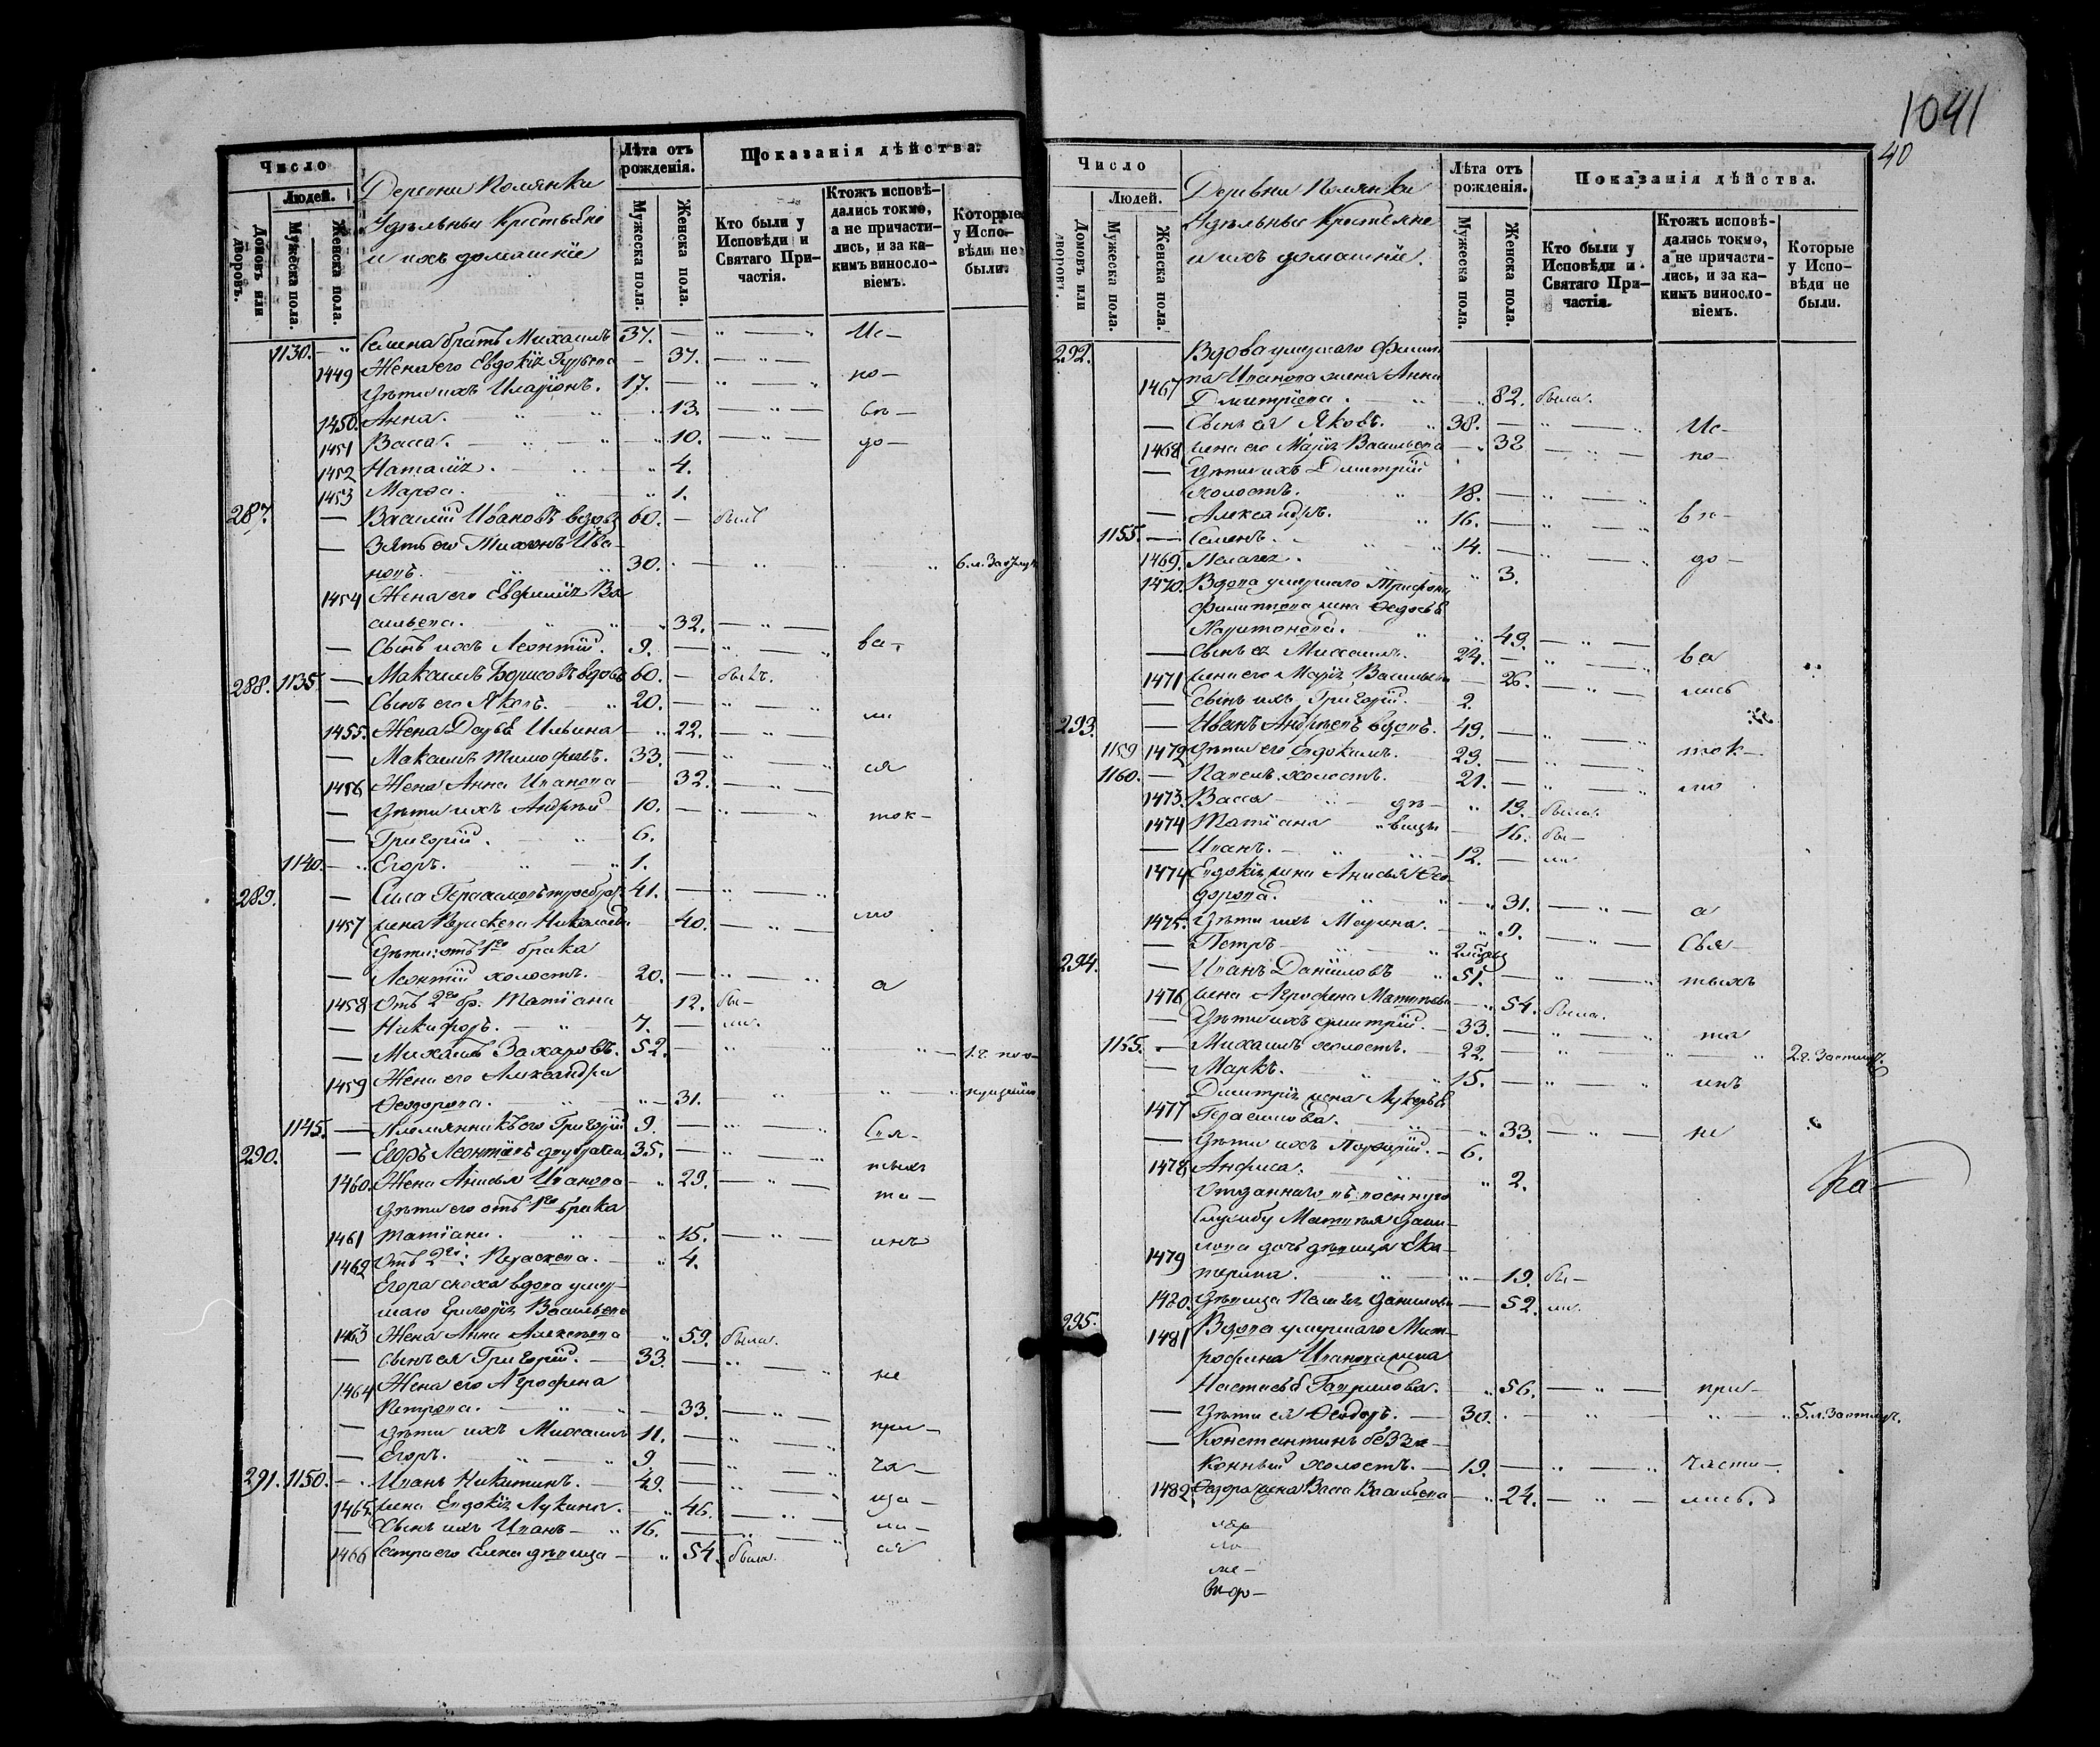 Число
Людей.
Домовъ или дворовъ.
Мужеска пола.
Женска пола.
Деревни Полянки
Удѣльные Крестьяне
и ихъ домашніе
Лѣта отъ рожденія.
Мужеска пола.
Женска пола.
Показанія дѣйства.
Кто были у Исповѣди и Святаго Причастія.
Ктожъ исповѣдались токмо, а не причастились, и за какимъ винословіемъ.
Которые у Исповѣди не были.
1130. Семена братъ Михаилъ 37. Ис-
1449 Жена его Евдокія 37.
Дѣти ихъ Иларіонъ. 17. по-
1450 Анна. 13. вѣ-
1451 Васса. 10. до-
1452 Наталія. 4.
1453 Марѳа. 1.
287. Василій Ивановъ вдовъ 60. былъ
Зять его Ива-
новъ. 30.
1454 Жена его Евфимія Ва-
сильева. 32.
Сынъ ихъ Леонтій. 9. ва-
288. 1135. Максимъ Борисовъ вдовъ 60. былъ.
Сынъ его Яковъ. 20. ли
1455. Жена Дарья Ильина 22.
Максимъ Тимофеевъ. 33. ся
1456 Жена Анна Иванова 32.
Дѣти ихъ Андрей 10. ток-
Григорій. 6.
1140. Егоръ. 1.
289. Герасимовъ 41.
1457 жена Параскева Николаева 40. мо
Дѣти: отъ 1го брака
Леонтій холостъ. 20. а
1458 Отъ 2го бр. Татіана 12. бы-
Никифоръ. 7. ли.
Михаилъ Захаровъ. 52.
1459 Жена его Александра
Ѳеодорова. 31.
1145. Племянникъ его Григорій 9. Свя-
290. Егоръ Леонтіевъ 35. тыхъ
1460. Жена Анисья Иванова 29. та-
Дѣти его отъ 1го брака
1461 Татіана. 15. инъ
1462 Отъ 2го: Параскева. 4.
Егора сноха вдова умер-
шаго Григорія Васильева
1463 Жена Анна Алексѣева 59. была.
Сынъ ея Григорій. 33. не
1464 Жена его Агрофена
Петрова. 33.
Дѣти ихъ Михаилъ 11. при-
Егоръ. 9. ча-
291. 1150. Иванъ Никитинъ. 49. ща-
1465. жена Евдокія Лукина. 46. ли-
Сынъ ихъ Иванъ 16. ся
1466 Сестра его Елена дѣвица 54. была.
1041
40
Число
Людей.
Домовъ или дворовъ.
Мужеска пола.
Женска пола.
Деревни Полянки
Удѣльные Крестьяне
и ихъ домашніе.
Лѣта отъ рожденія.
Мужеска пола.
Женска пола.
Показанія дѣйства.
Кто были у Исповѣди и Святаго Причастія.
Ктожъ исповѣдались токмо, а не причастились, и за какимъ винословіемъ.
Которые у Исповѣди не были.
292. Вдова умершаго Филип-
1467 па Иванова жена Анна
Дмитріева. 82. была.
Сынъ ея Яковъ. 38. Ис-
1468 жена его Марія Васильева 32 по-
Дѣти ихъ Дмитрій
холостъ. 18.
Александръ. 16. вѣ-
1155. Семенъ. 14.
1469. Пелагея. 3. до-
1470. Вдова умершаго Трифона
Филиппова жена Ѳедосья
Харитонова. 49.
Сынъ ея Михаилъ. 24. ва
1471 жена его Марія Васильева 26. лись
Сынъ ихъ Григорій. 2.
293. Иванъ Андреевъ вдовъ. 49.
1159 1472 Дѣти его Евдокимъ. 29. ток-
1160. Павелъ холостъ. 21. мо
1473. Васса дѣ- 19. была.
1474 Татіана вицы 16. бы-
Иванъ. 12. ли
1474 жена Анисья Ѳео-
дорова. 31. а
1475. Дѣти ихъ Марина. 9.
Петръ Свя-
294. Иванъ Даниловъ 51. тыхъ
1476 жена Агрофена Матвѣева 54. была.
Дѣти ихъ Дмитрій. 33. та
1165. Михаилъ холостъ. 22.
Маркъ. 15. инъ
Дмитрія жена Лукерья
1477 Герасимова. 33. не
Дѣти ихъ Порфирій. 6.
1478 Анфиса. 2.
Отданнаго въ военную
службу Матвѣя Дани-
1479 лова дочь дѣвица Ека-
терина. 19. бы-
1480. Дѣвица Данилова 52. ли.
295. Вдова умершаго Мит-
1481 рофана Иванова жена
Настасья Гаврилова. 56. при-
Дѣти ея Ѳеодоръ. 30.
Константинъ безза-
конный холостъ. 19. части-
1482 Ѳедора жена Васса Васильева 24. лись.